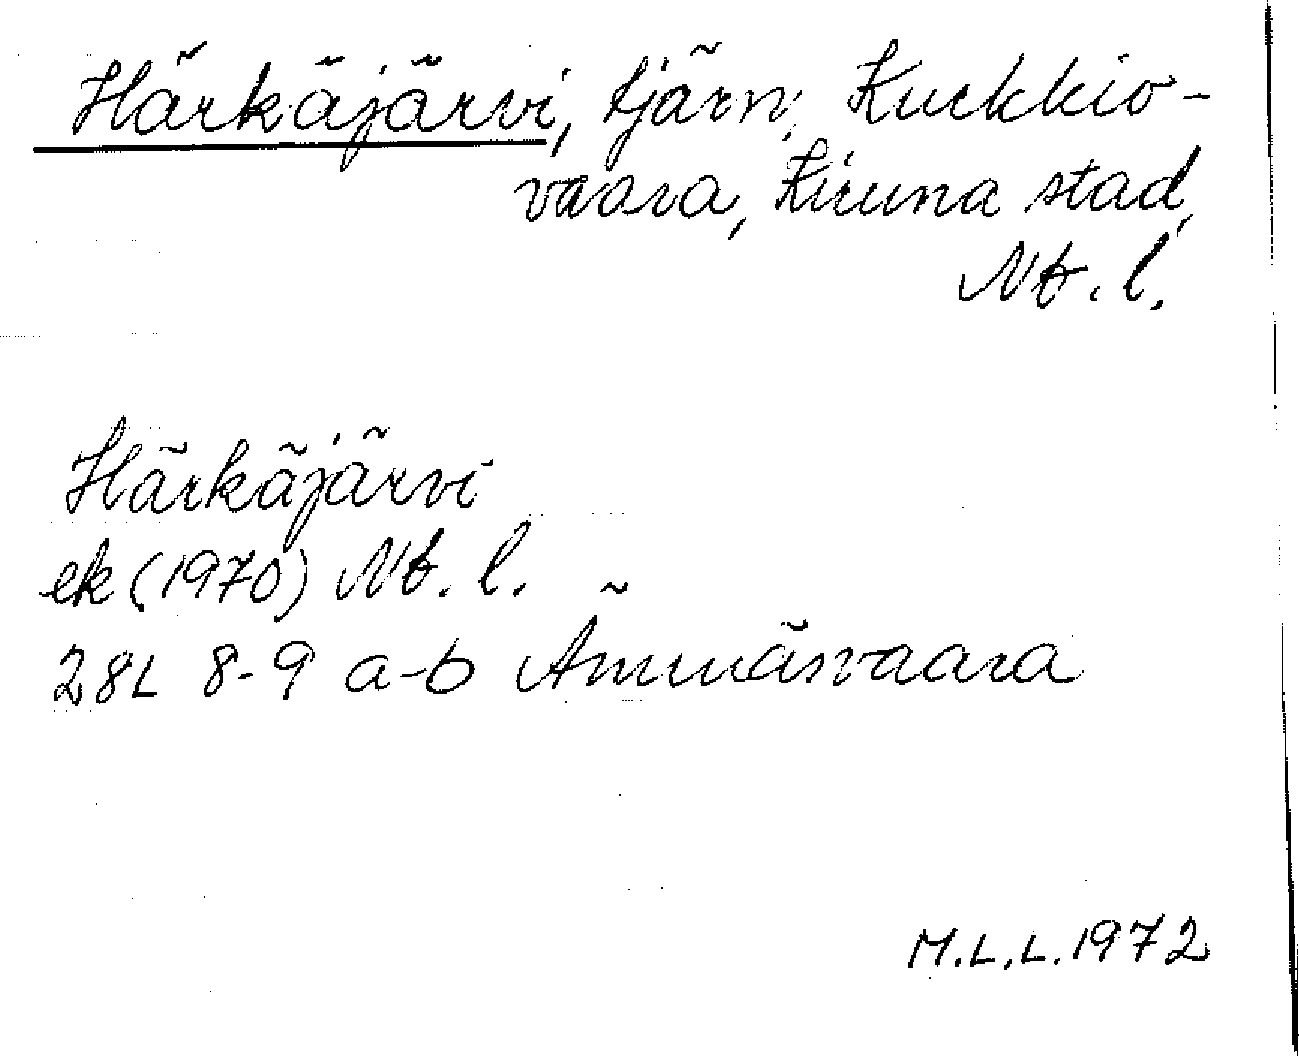 Härkäjärvi, tjärn, Kurkkio-
vaara, Kiruna stad,
Nb. l.
Härkäjärvi
ek (1970) Nb. l.
28L 8-9 a-b Ämmäsvaara
M.L.L. 1972